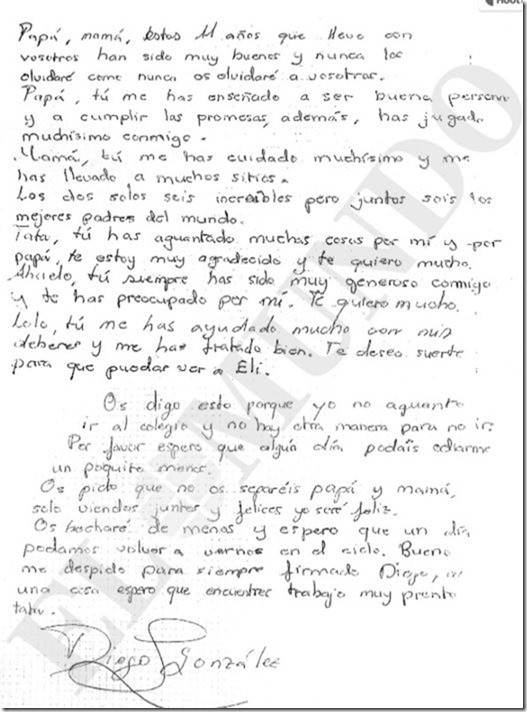 Papá, mamá, estos 11 años que llevo con
vosotros han sido muy buenos y nunca los
olvidaré como nunca os olvidaré a vosotros.
Papá, tú me has enseñado a ser buena persona
y a cumplir las promesas, además, has jugado
muchísimo conmigo.
Mamá, tú me has cuidado muchísimo y me
has llevado a muchos sitios.
Los dos solos seis increíbles pero juntos sois los
mejores padres del mundo.
Tata, tú has aguantado muchas cosas por mí y por
papá, te estoy muy agradecido y te quiero mucho.
Abuelo, tú siempre has sido muy generoso conmigo
y te has preocupado por mí. Te quiero mucho.
Lolo, tú me has ayudado mucho con mis
deberes y me has tratado bien. Te deseo suerte
para que puedas ver a Eli.
Os digo esto porque yo no aguanto
ir al colegio y no hay otra manera para no ir.
Por favor espero que algún día podáis odiarme
un poquito menos.
Os pido que no os separéis papá y mamá,
solo viendos juntos y felices yo seré feliz.
Os hecharé de menos y espero que un día
podamos volver a vernos en el cielo. Bueno
me despido para siempre firmado Diego,
una cosa espero que encuentres trabajo muy pronto
tata.
Diego González
EL MUNDO